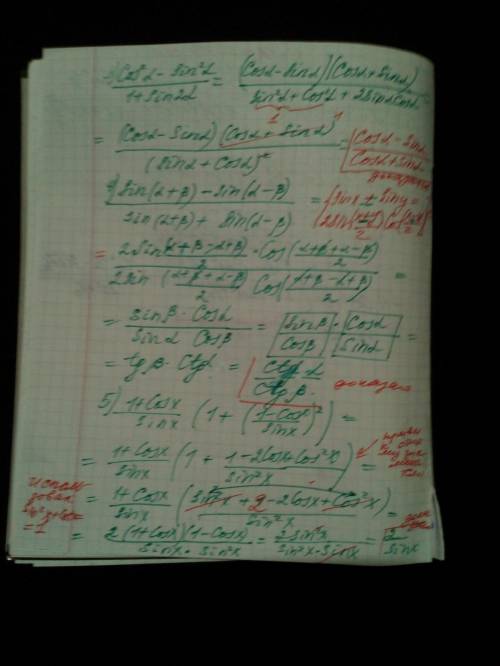 3) (Cos²α - Sin²α)/(1+Sin2α) = (Cosα - Sinα)(Cosα + Sinα)/(Sin²α + Cos²α + 2SinαCosα) =
1 1
= (Cosα - Sinα)(Cosα + Sinα)/(Sinα + Cosα)² = (Cosα - Sinα)/(Cosα + Sinα)
4) (Sin(α+β) - Sin(α-β))/(Sin(α+β) + Sin(α-β)) = {Sinx ± Siny =
= 2Sin(α+β-α+β)/2 · Cos(α+β+α-β)/2 / 2Sin(α+β+α-β)/2 Cos(α+β-α+β)/2 =
= Sinβ · Cosα/Sinα Cosβ = Sinβ/Cosβ · Cosα/Sinα =
= tgβ · Ctgα = Ctgα/Ctgβ
5) (1+Cosx)/Sinx (1 + ((1-Cosx)/Sinx)²) =
= (1+Cosx)/Sinx (1 + (1-2Cosx+Cos²x)/Sin²x) =
= (1+Cosx)/Sinx (Sin²x + 2 - 2Cosx + Cos²x)/Sin²x =
= 1
= 2(1+Cosx)(1-Cosx)/Sinx · Sin²x = 2Sin²x/Sin²x · Sinx = 2/Sinx